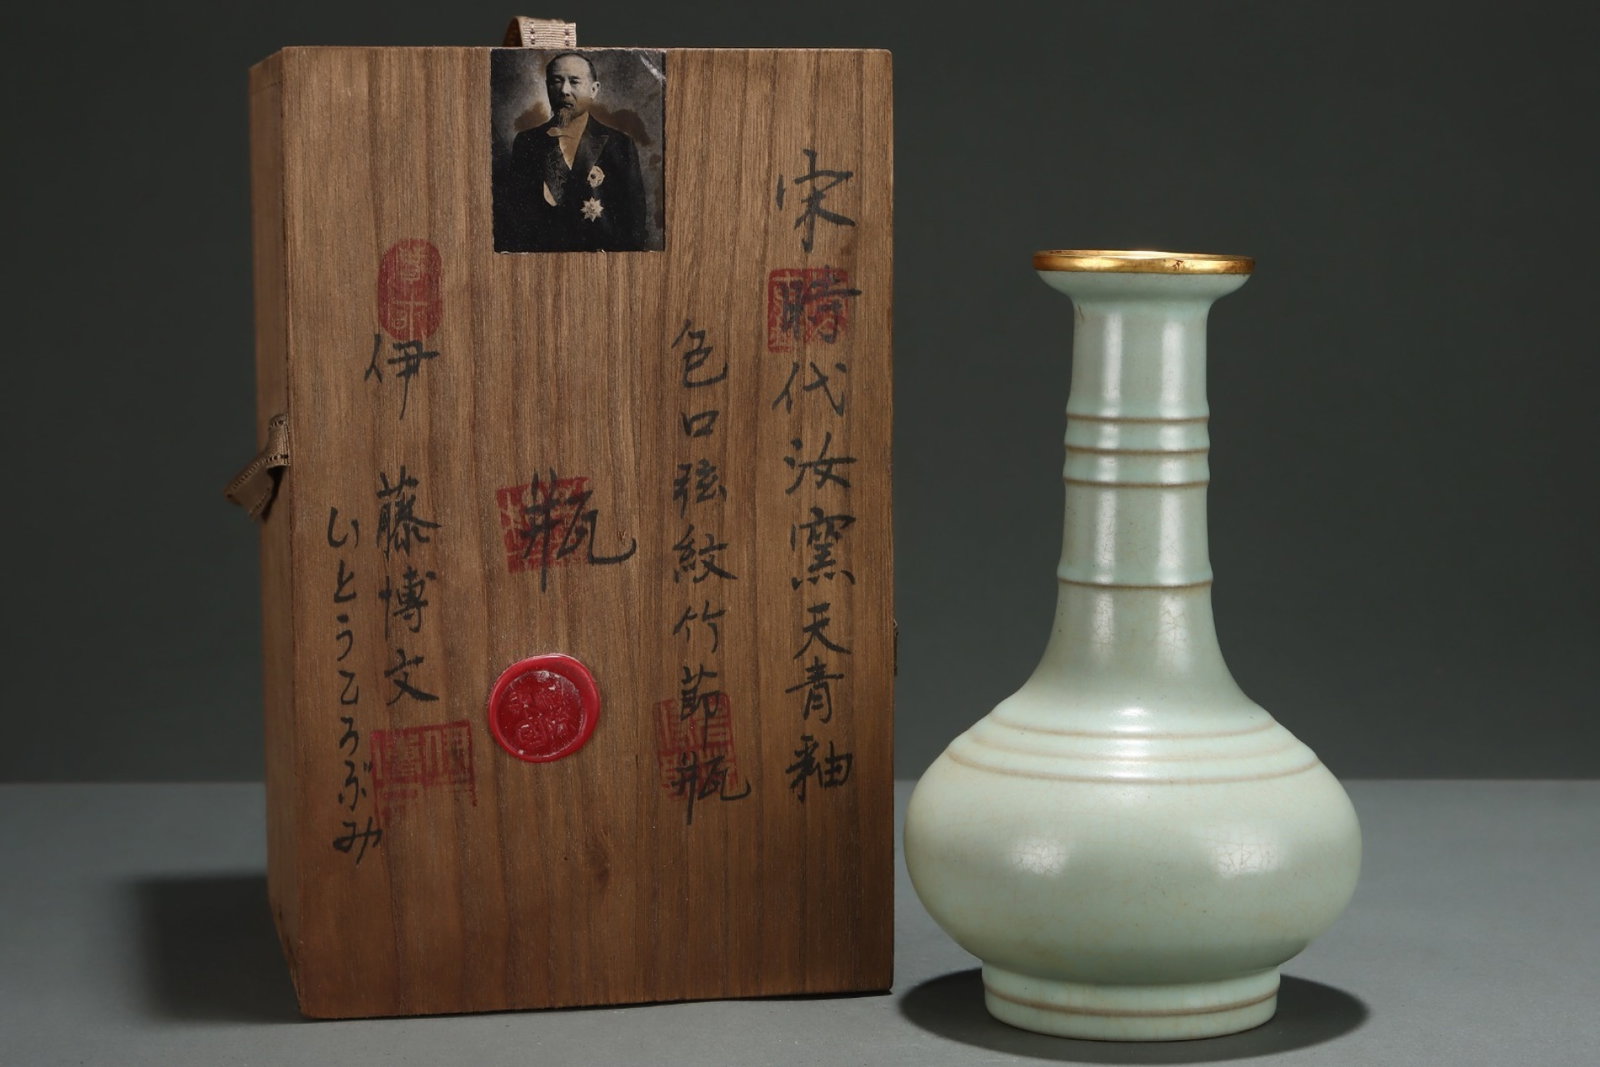 宋時代汝窯天青釉
色口弦紋竹節瓶
瓶
伊藤博文
いとうひろぶみ